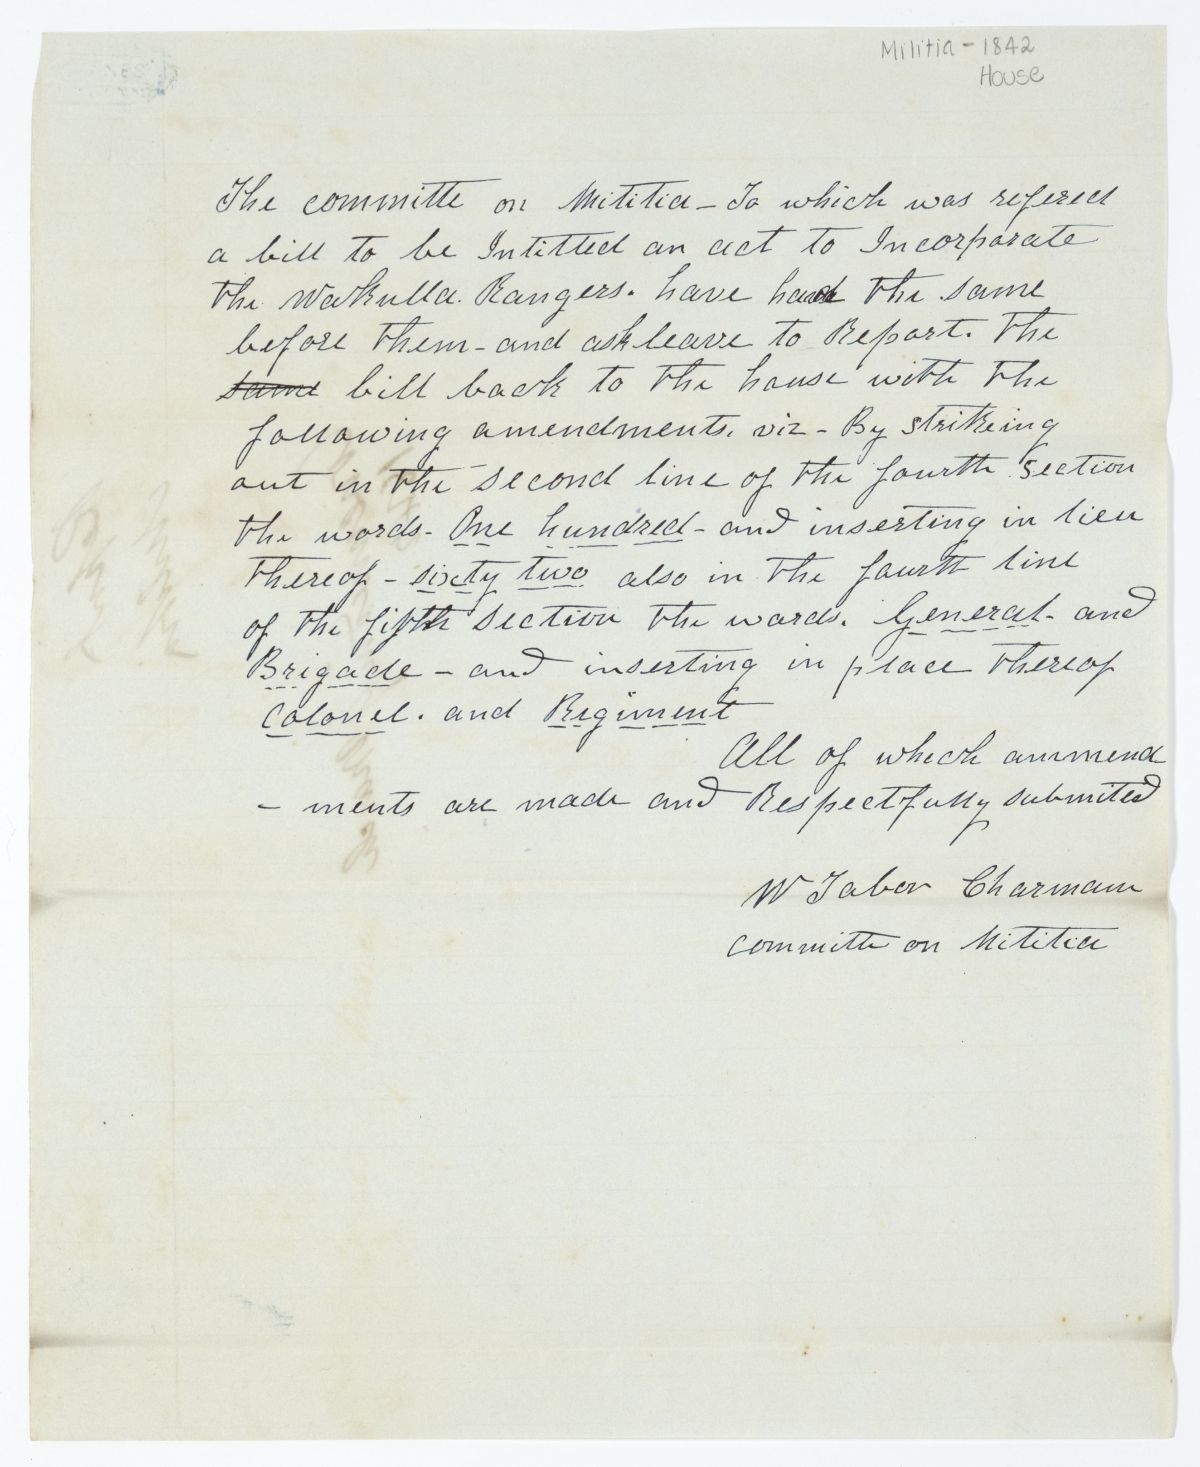 Militia - 1842
House
The committe on Mititia - To which was refered
a bill to be Intittled an act to Incorporate
the Wakulla. Rangers. have had the same
before them - and ask leave to Report. the
same bill back to the house with the
following amendments. viz - By strikeing
out in the second line of the fourth section
the words - One hundred - and inserting in lieu
thereof - sixty two also in the fourth line
of the fifth section the words. General - and
Brigade - and inserting in place thereof
Colonel. and Regiment
All of which ammend
- ments are made and Respectfully submited
W Tabor Charmam
committe on Mititia